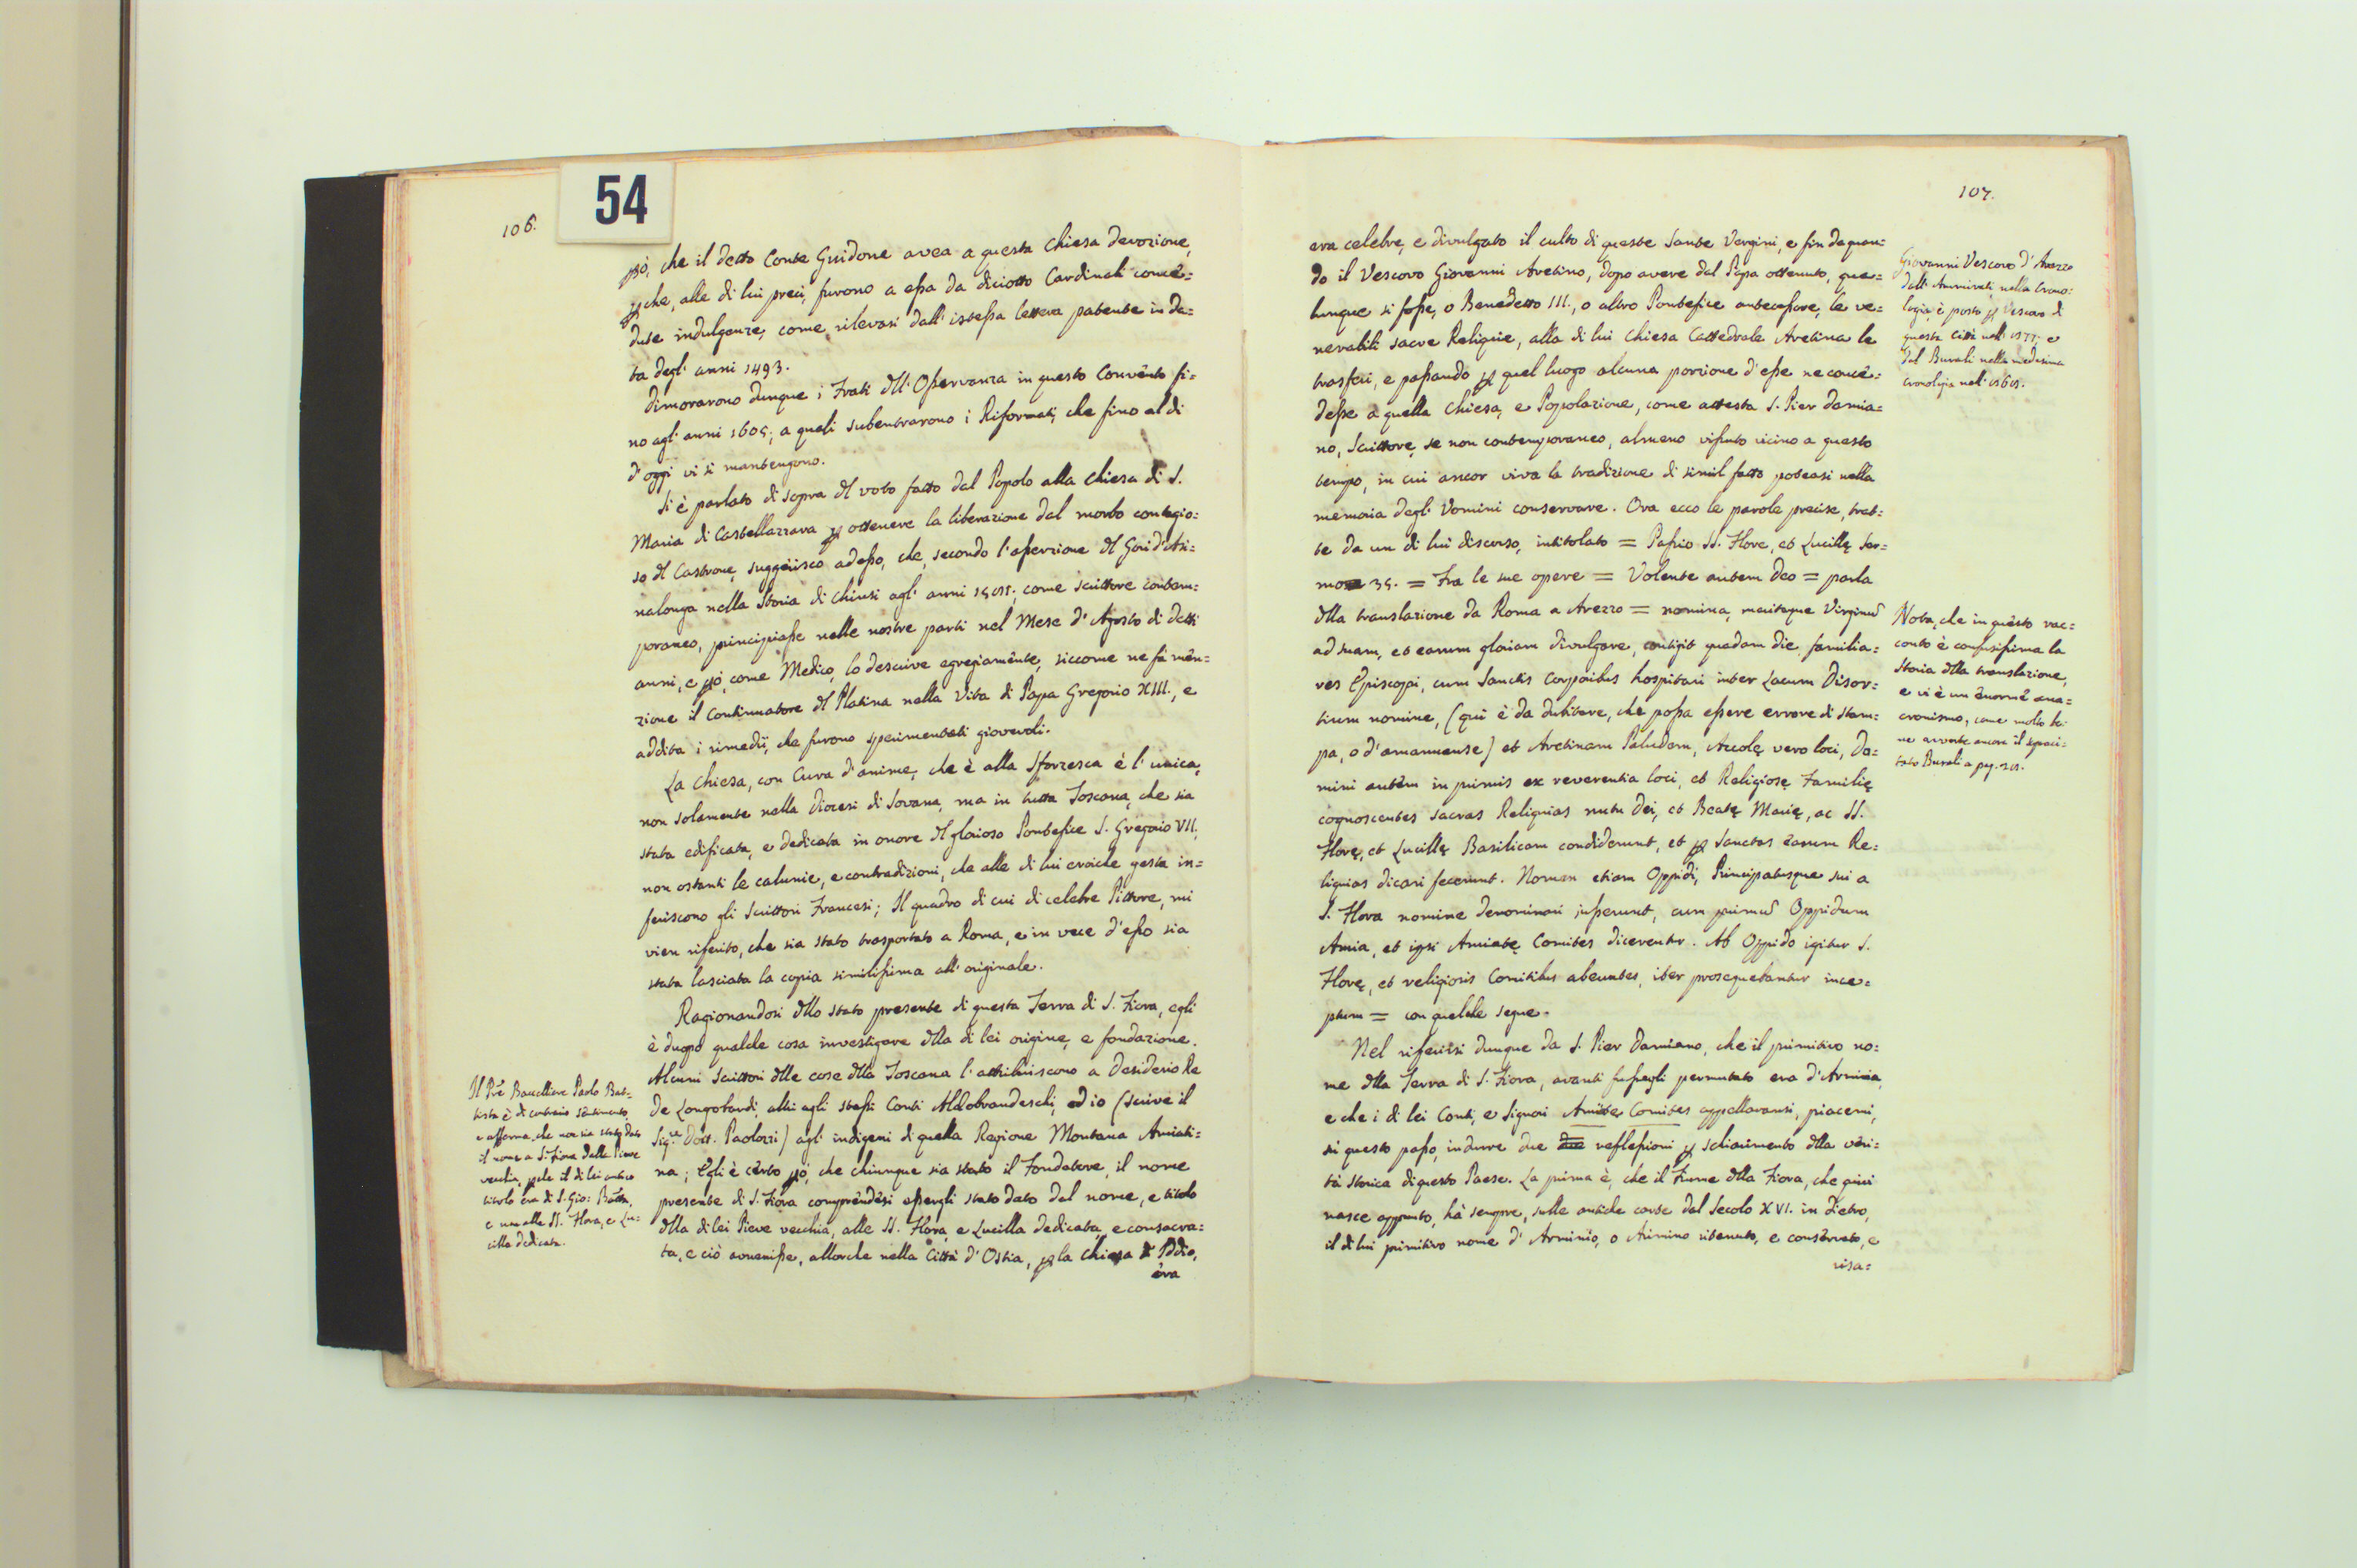 54
106.
pò, che il detto Conte Guidone avea a questa Chiesa devozione,
p che, alle di lui preci, furono a essa da diciotto Cardinali conce=
dute indulgenze, come rilevasi dall' istessa lettera patente in da=
ta degl' anni 1493.
Dimorarono dunque i Frati dll' Osservanza in questo Convento fi=
no agl' anni 1605; a quali subentrarono i Riformati, che fino al di
d' oggi vi si mantengono.
Si è parlato di sopra dl voto fatto dal Popolo alla Chiesa di S.
Maria di Castellazzara p ottenere la liberazione dal morbo contagio=
so dl Castrone, suggerisco adesso, che, secondo l' asserzione dl Gori d' Asi=
nalonga nella Storia di Chiusi agl' anni come scrittore contem=
poraneo, principiasse nelle nostre parti nel Mese d' Agosto di detti
anni, e pò, come Medico, lo descrive egregiamente, siccome ne fà men=
zione il Continuatore dl Platina nella Vita di Papa Gregorio XIII., e
addita i rimedii, che furono sperimentati giovevoli.
La Chiesa, con Cura d' anime, che è alla Sforzesca è l' unica,
non solamente nella Diocesi di Sovana, ma in tutta Toscana, che sia
stata edificata, e dedicata in onore dl glorioso Pontefice S. Gregorio VII.
non ostanti le calunie, e contradizioni, che alle di lui eroiche gesta in=
feriscono gli Scrittori Francesi; Il quadro di cui di celebre Pittore, mi
vien riferito, che sia stato trasportato a Roma, e in vece d' esso sia
stata lasciata la copia similissima all' originale.
Ragionandosi dllo stato presente di questa Terra di S. Fiora, egli
è duopo qualche cosa investigare dlla di lei origine, e fondazione.
Alcuni Scrittori dlle cose dlla Toscana l' attribuiscono a Desiderio Re
de Longobardi, altri agli stessi Conti Aldobrandeschi, ed io (scrive il
Sig.re Dott. Paolozzi) agl' indigeni di quella Regione Montana Amiati=
na; Egli è certo pò, che chiunque sia stato il Fondatore, il nome
presente di S. Fiora comprendesi essergli stato dato dal nome, e titolo
dlla di lei Pieve vecchia, alle SS. Flora, e Lucilla dedicata, e consacra=
ta, e ciò avvenisse, allorche nella Città d' Ostia, p la Chiesa di Iddio,
era
Il Pre Baccelliere Paolo Bat=
tista è di contrario sentimento,
e afferma, che non sia stato dato
il nome a S. Fiora dalla Pieve
vecchia, pche il di lei antico
titolo era di S. Gio: Batta,
e non alle SS. Flora, e Lu=
cilla dedicata.
107.
era celebre, e divulgato il culto di queste Sante Vergini, e fin da quan=
do il Vescovo Giovanni Aretino, dopo avere dal Papa ottenuto, qua=
lunque si fosse, o Benedetto III., o altro Pontefice antecessore, le ve=
nerabili sacre Reliquie, alla di lui Chiesa Cattedrale Aretina le
trasferì, e passando p quel luogo alcuna porzione d' esse ne conce=
desse a quella Chiesa, e Popolazione, come attesta S. Pier Damia=
no, Scrittore, se non contemporaneo, almeno vissuto vicino a questo
tempo, in cui ancor viva la tradizione di simil fatto poteasi nella
memoria degl' Uomini conservare. Ora ecco le parole precise, trat=
te da un di lui discorso, intitolato = Passio SS. Flore, et Lucillę Ser=
mo 35. = Fra le sue opere = Volente autem Deo = parla
dlla translazione da Roma a Arezzo = nomina, meritaque Virginū
ad suam, et earum gloriam divulgare, contigit quadam die, familia=
res Episcopi, cum Sanctis Corporibus hospitari inter Lacum Disor=
tium nomine, (qui è da dubitare, che possa essere errore di stam=
pa, o d' amanuense) et Aretinam Paludem, Accolę vero loci, Do=
mini autem in primis ex reverentia loci, et Religiosę Familię
cognoscentes sacras Reliquias nutu Dei, et Beatę Marię, ac SS.
Florę, et Lucillę Basilicam condiderunt, et p Sanctas earum Re=
liquias dicari fecerunt. Nomen etiam Oppidi, Principatusque sui a
S. Flora nomine denominari jusserunt, cum primū Oppidum
Amia, et ipsi Amiatę Comites dicerentur. Ab Oppido igitur S.
Florę, et religiosis Comitibus abeuntes, iter prosequebantur ince=
ptum = con quelche segue.
Nel riferirsi dunque da S. Pier Damiano, che il primitivo no=
me dlla Terra di S. Fiora, avanti fussegli permutato era d' Arminia,
e che i di lei Conti, e Signori Amiate Comites appellavansi, piacemi,
su questo passo, indurre due due reflessioni p schiarimento dlla veri=
tà storica di questo Paese. La prima è, che il Fiume dlla Fiora, che quivi
nasce appunto, hà sempre, sulle antiche carte dal Secolo XVI. in dietro,
il di lui primitivo nome d' Arminio, o Arimino ritenuto, e conservato, e
risa=
Giovanni Vescovo d' Arezzo
dall' Ammirati nella Crono=
logia, è posto p Vescovo di
questa Città nell' e
dal Burali nella medesima
cronologia nell'
Nota, che in questo rac=
conto è confusissima la
Storia dlla translazione,
e vi è un enorme ana=
cronismo, come molto be=
ne avverte ancora il sopraci=
tato Burali a pag.